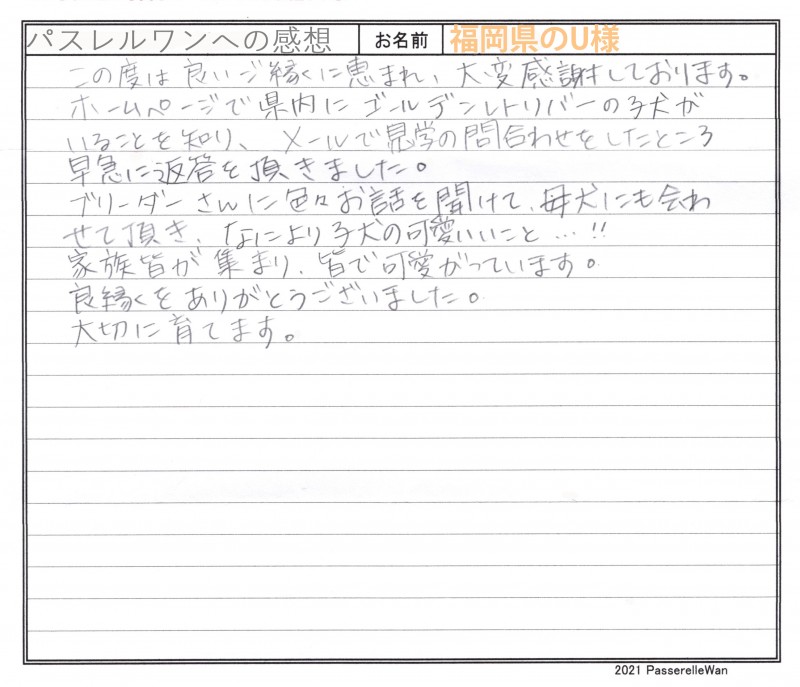 パスレルワンへの感想 お名前 福岡県のU様
この度は良いご縁に恵まれ、大変感謝しております。
ホームページで県内にゴールデンレトリバーの子犬が
いることを知り、メールで見学の問合わせをしたところ
早急に返答を頂きました。
ブリーダーさんに色々お話を聞けて、母犬にも会わ
せて頂き、なにより子犬の可愛いいこと…!!
家族皆が集まり、皆で可愛がっています。
良縁をありがとうございました。
大切に育てます。
2021 PasserelleWan